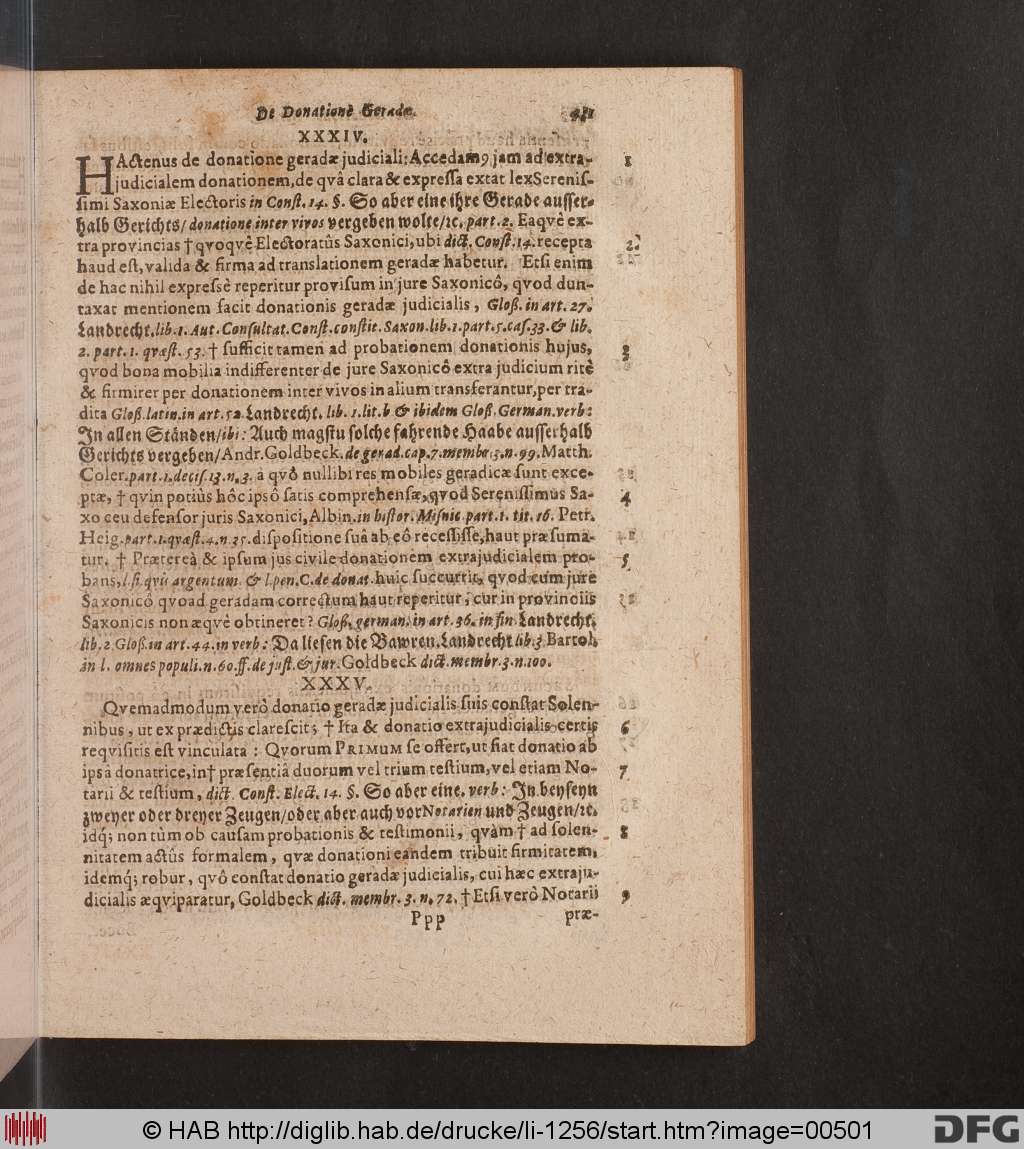 De Donationè Geradæ. 481
XXXIV.
HActenus de donatione geradæ judiciali: Accedam9 jam ad extra- 1
judicialem donationem, de qvâ clara & expressa extat lex Serenis-
simi Saxoniæ Electoris in Const. 14. §. So aber eine ihre Gerade ausser-
halb Gerichts/ donatione inter vivos vergeben wolte/ ꝛc. part. 2. Eaqvè ex-
tra provincias † qvoqvê Electoratûs Saxonici, ubi dict. Const. 14. recepta 2.
haud est, valida & firma ad translationem geradæ habetur. Etsi enim
de hac nihil expressè reperitur provisum in jure Saxonicô, qvod dun-
taxat mentionem facit donationis geradæ judicialis, Gloß. in art. 27.
Landrecht. lib. 1. Aut. Consultat. Const. constit. Saxon. lib. 1. part. 5. cas. 33. & lib.
2. part. 1. qvæst. 53. † sufficit tamen ad probationem donationis hujus, 3
qvod bona mobilia indifferenter de jure Saxonicô extra judicium ritè
& firmirer per donationem inter vivos in alium transferantur, per tra-
dita Gloß. latin. in art. 52. Landrecht. lib. 1. lit. b & ibidem Gloß. German. verb:
In allen Ständen/ ibi: Auch magstu solche fahrende Haabe ausserhalb
Gerichts vergeben/ Andr. Goldbeck. de gerad. cap. 7. membr. 3. n. 99. Matth.
Coler. part. 1. decis. 13. n. 3. à qvô nullibi res mobiles geradicæ sunt exce-
ptæ, † qvin potiùs hôc ipsô satis comprehensæ, qvod Serenissimus Sa- 4
xo ceu defensor juris Saxonici, Albin. in histor. Misnic. part. 1. tit. 16. Petr.
Heig. part. 1. qvæst. 4. n. 35. dispositione suâ ab eô recessisse, haut præsuma-
tur. † Prætereà & ipsum jus civile donationem extrajudicialem pro- 5
bans, l. si qvis argentum. & l. pen. C. de donat. huic succurrit, qvod cum jure
Saxonicô qvoad geradam correctum haut reperitur, cur in provinciis
Saxonicis non æqvè obtineret? Gloß. german. in art. 36. in fin. Landrecht.
lib. 2. Gloß. in art. 44. in verb: Da liesen die Bawren. Landrecht lib. 3. Bartol.
in l. omnes populi. n. 60. ff. de just. & jur. Goldbeck dict. membr. 3. n. 100.
XXXV.
Qvemadmodum verò donatio geradæ judicialis suis constat Solen-
nibus, ut ex prædictis clarescit; † Ita & donatio extrajudicialis certis 6
reqvisitis est vinculata: Qvorum PRIMUM se offert, ut fiat donatio ab
ipsâ donatrice, in † præsentiâ duorum vel trium testium, vel etiam No- 7
tarii & testium, dict. Const. Elect. 14. §. So aber eine. verb: In beyseyn
zweyer oder dreyer Zeugen/ oder aber auch vor Notarien und Zeugen/ ꝛc.
idq́; non tùm ob causam probationis & testimonii, qvàm † ad solen- 8
nitatem actûs formalem, qvæ donationi eandem tribuit firmitatem,
idemq́; robur, qvô constat donatio geradæ judicialis, cui hæc extraju-
dicialis æqviparatur, Goldbeck dict. membr. 3. n. 72. † Etsi verò Notarii 9
Ppp præ-
© HAB http://diglib.hab.de/drucke/li-1256/start.htm?image=00501
DFG